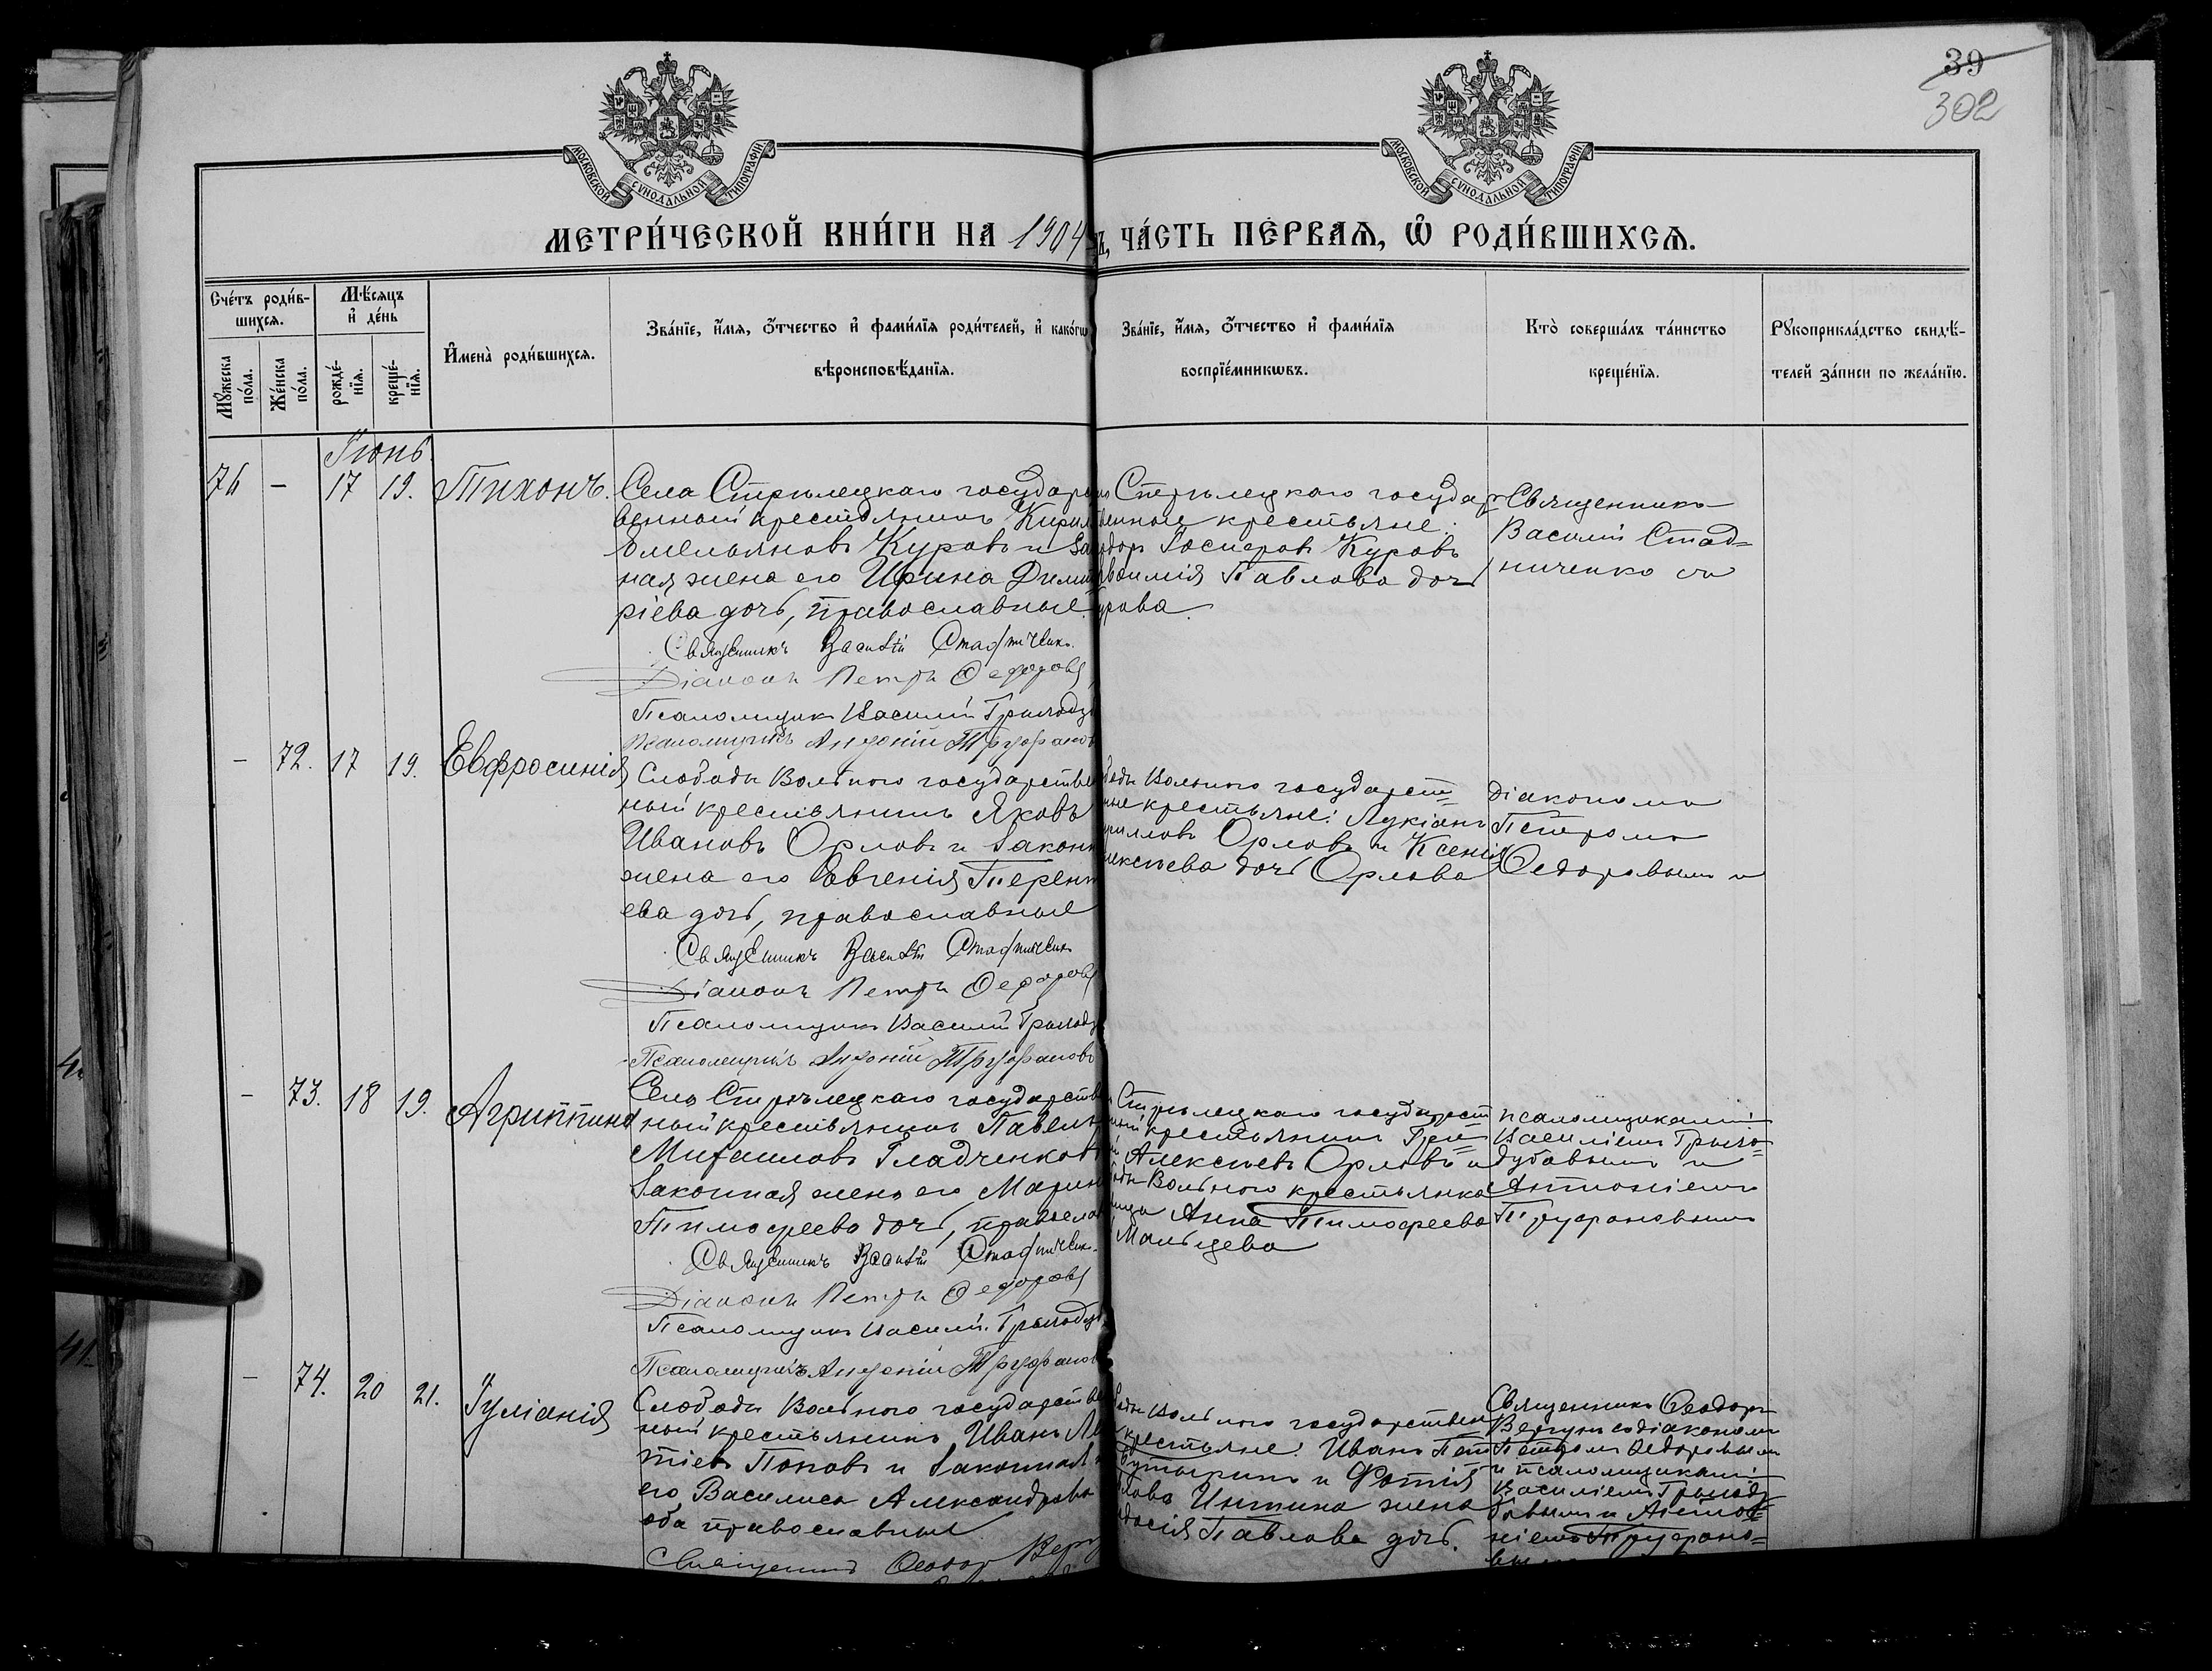 39
302
МОСКОВСКОЙ СѴНОДАЛЬНОЙ ТИПОГРАФІИ
МОСКОВСКОЙ СѴНОДАЛЬНОЙ ТИПОГРАФІИ
МЕТРИ́ЧЕСКОЙ КНИ́ГИ НА 1904 ЧА́СТЬ ПЕ́РВАѦ, Ѡ҆ РОДИ́ВШИХСѦ.
Сче́тъ роди́в-
шихсѧ.
Мꙋ́жеска по́ла.
Же́нска по́ла.
Мѣ́сяцъ и҆ де́нь
рожде́-
нїѧ.
креще́-
нїѧ.
И҆мена̀ роди́вшихсѧ.
Зва́нїе, и҆́мѧ, ѻ҆́тчество и҆ фами́лїѧ роди́телей, и҆ како́гѡ
вѣроисповѣ́данїѧ.
Зва́нїе, и҆́мѧ, ѻ҆́тчество и҆ фами́лїѧ
воспрїе́мникѡвъ.
Кто̀ соверша́лъ та́инство
креще́нїѧ.
Рꙋкоприкла́дство свидѣ́-
телей за́писи по жела́нїю.
Іюнь.
76 – 17 19. Тихонъ.
Села Стрѣлецкаго государст
венный крестьянинъ Кирил
Емельяновъ Куровъ и зак
ная жена его Ирина Димит
ріева дочь, православные.
Священникъ Василій Стадниченко
Діаконъ Петръ Ѳедоровъ
Псаломщикъ Василій Грызодуб
Псаломщикъ Антоній Труфановъ
Стрѣлецкаго государ
венные крестьяне:
Куровъ
Павлова дочь
урова.
Священникъ
Василій Стад=
ниченко съ
– 72. 17 19. Евфросинія
Слободы Вольного государствен
ный крестьянинъ Яковъ
Ивановъ Орловъ и законн
жена его Евгенія Терент
ева дочь, православные
Священникъ Василій Стадниченко
Діаконъ Петръ Ѳедоровъ
Псаломщикъ Василій Грызодуб
Псаломщикъ Антоній Труфановъ
боды Вольного государст=
ные крестьяне: Лукіанъ
рилловъ Орловъ и Ксенія
лексѣева дочь Орлова
Діакономъ
Петромъ
Ѳедоровымъ и
– 73. 18 19. Агриппина
Села Стрѣлецкаго государствен
ный крестьянинъ Павелъ
Михаиловъ Гладченковъ
законная жена его Марин
Тимоѳеева дочь, правосла
Священникъ Василій Стадниченко
Діаконъ Петръ Ѳедоровъ
Псаломщикъ Василій Грызодуб
Псаломщикъ Антоній Труфановъ
Стрѣлецкаго государст
ный крестьянинъ
Алексѣевъ Орловъ и
Вольного крестьянка
Анна Тимофеева
Мальцева
псаломщиками
Василіемъ Грызо=
дубовымъ и
Антоніемъ
Труфановымъ
– 74. 20 21. Іуліанія
Слободы Вольного государствен
ный крестьянинъ Иванъ
тіевъ Поповъ и законная
его Василиса Александрова
оба православные.
Священникъ Ѳеодоръ Верг
боды Вольного государствен
крестьяне: Иванъ
и Фотія
жена
Павлова дочь.
Священникъ Ѳеодоръ
Вергунъ съ діакономъ
Петромъ Ѳедоровымъ
и псаломщиками
Василіемъ Грызоду
бовымъ и Анто=
ніемъ Труфано=
40
41.